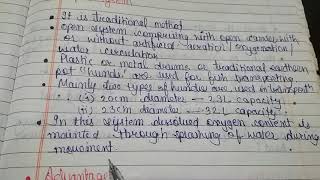 System
• It is traditional method
• open system comprising with open carrier, with
or without artificial aeration/oxygenation/
water circulation
• Plastic or metal drums or traditional earthen
pot "hundi" are used for fish transporting
• Mainly two types of hundies are used in transport
(i) 20cm diameter — 23L capacity
(ii) 23cm diameter — 32L capacity
• In this system dissolved oxygen content is
mainted through splashing of water during
movement
Advantage